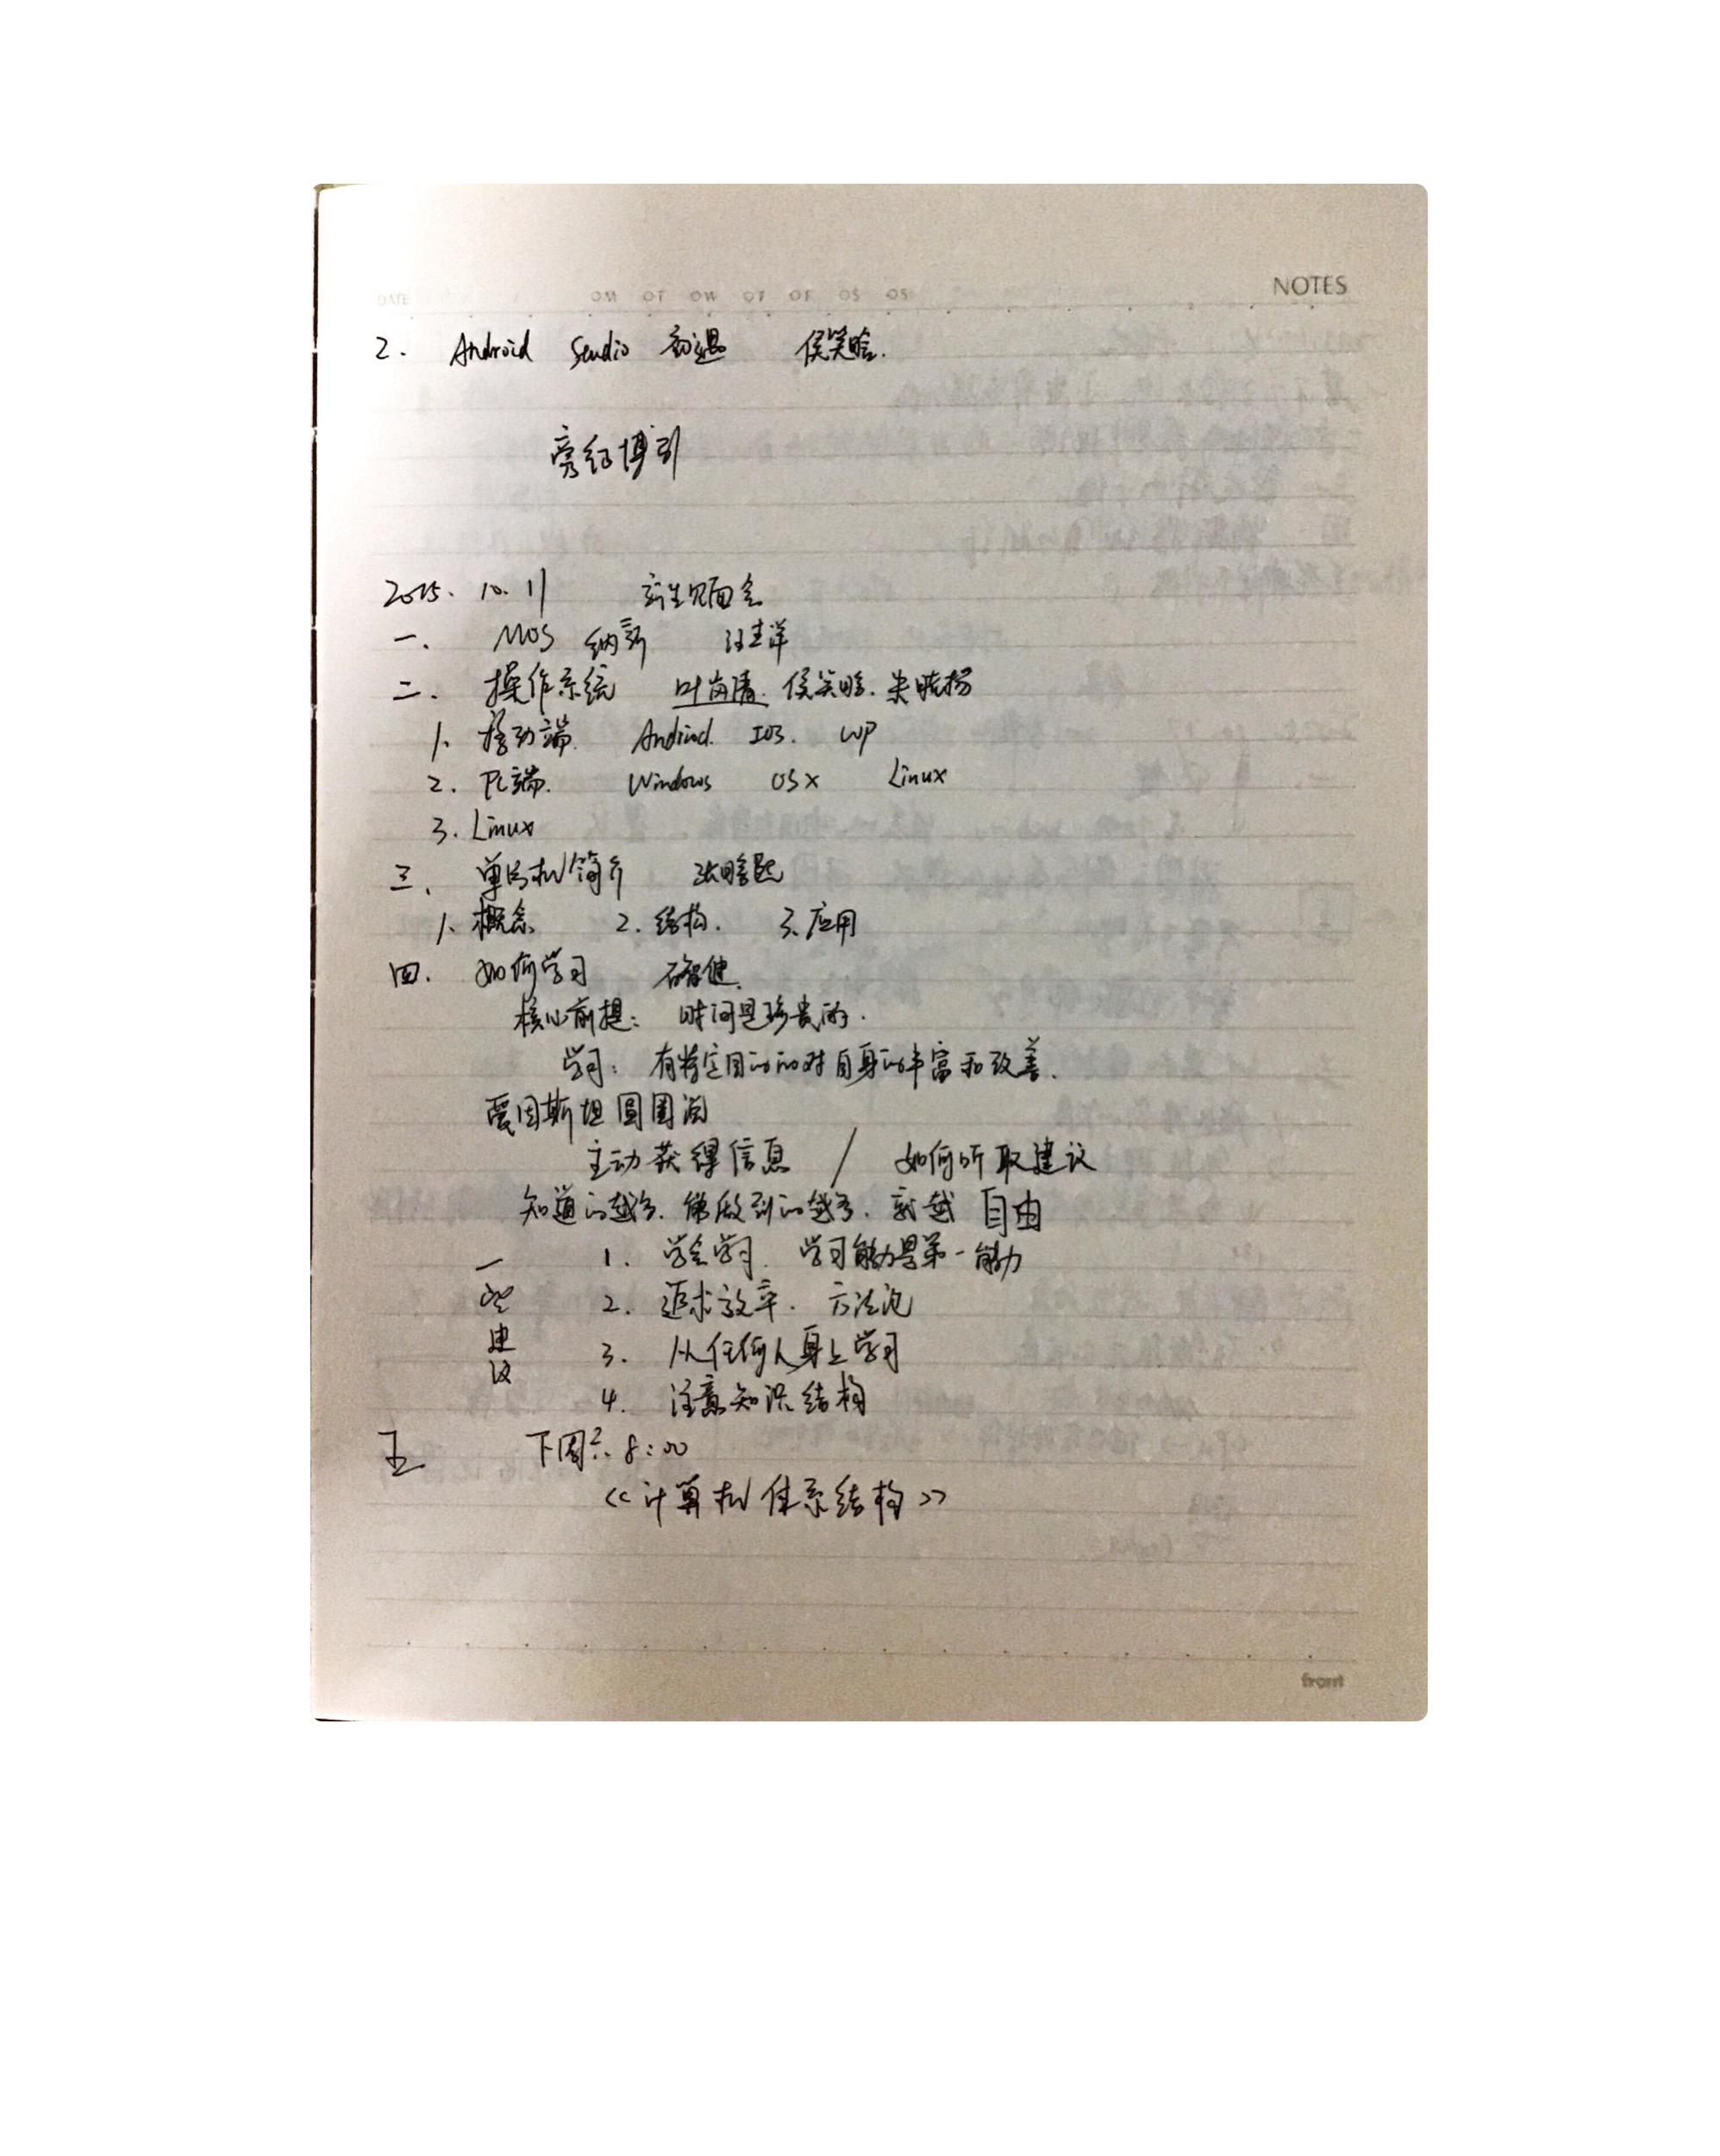 NOTES
DATE
2. Android Studio 初遇 侯笑晗.
旁征博引
2015. 10. 11 新生见面会
一. MOS 纳新
二. 操作系统 侯笑晗. 朱晓扬
1. 移动端. Android. IOS. WP
2. PC端. Windows OSX Linux
3. Linux
三. 单片机简介
1. 概念 2. 结构. 3. 应用
四. 如何学习
核心前提: 时间是珍贵的.
学习: 有特定目的的对自身的丰富和改善.
爱因斯坦圆圈论
主动获得信息 / 如何听取建议
知道的越多. 能做到的越多. 就越 自由
一些建议
1. 学会学习. 学习能力是第一能力
2. 追求效率. 方法论
3. 从任何人身上学习
4. 注意知识结构
五 下周六. 8:00
<<计算机体系结构>>
front